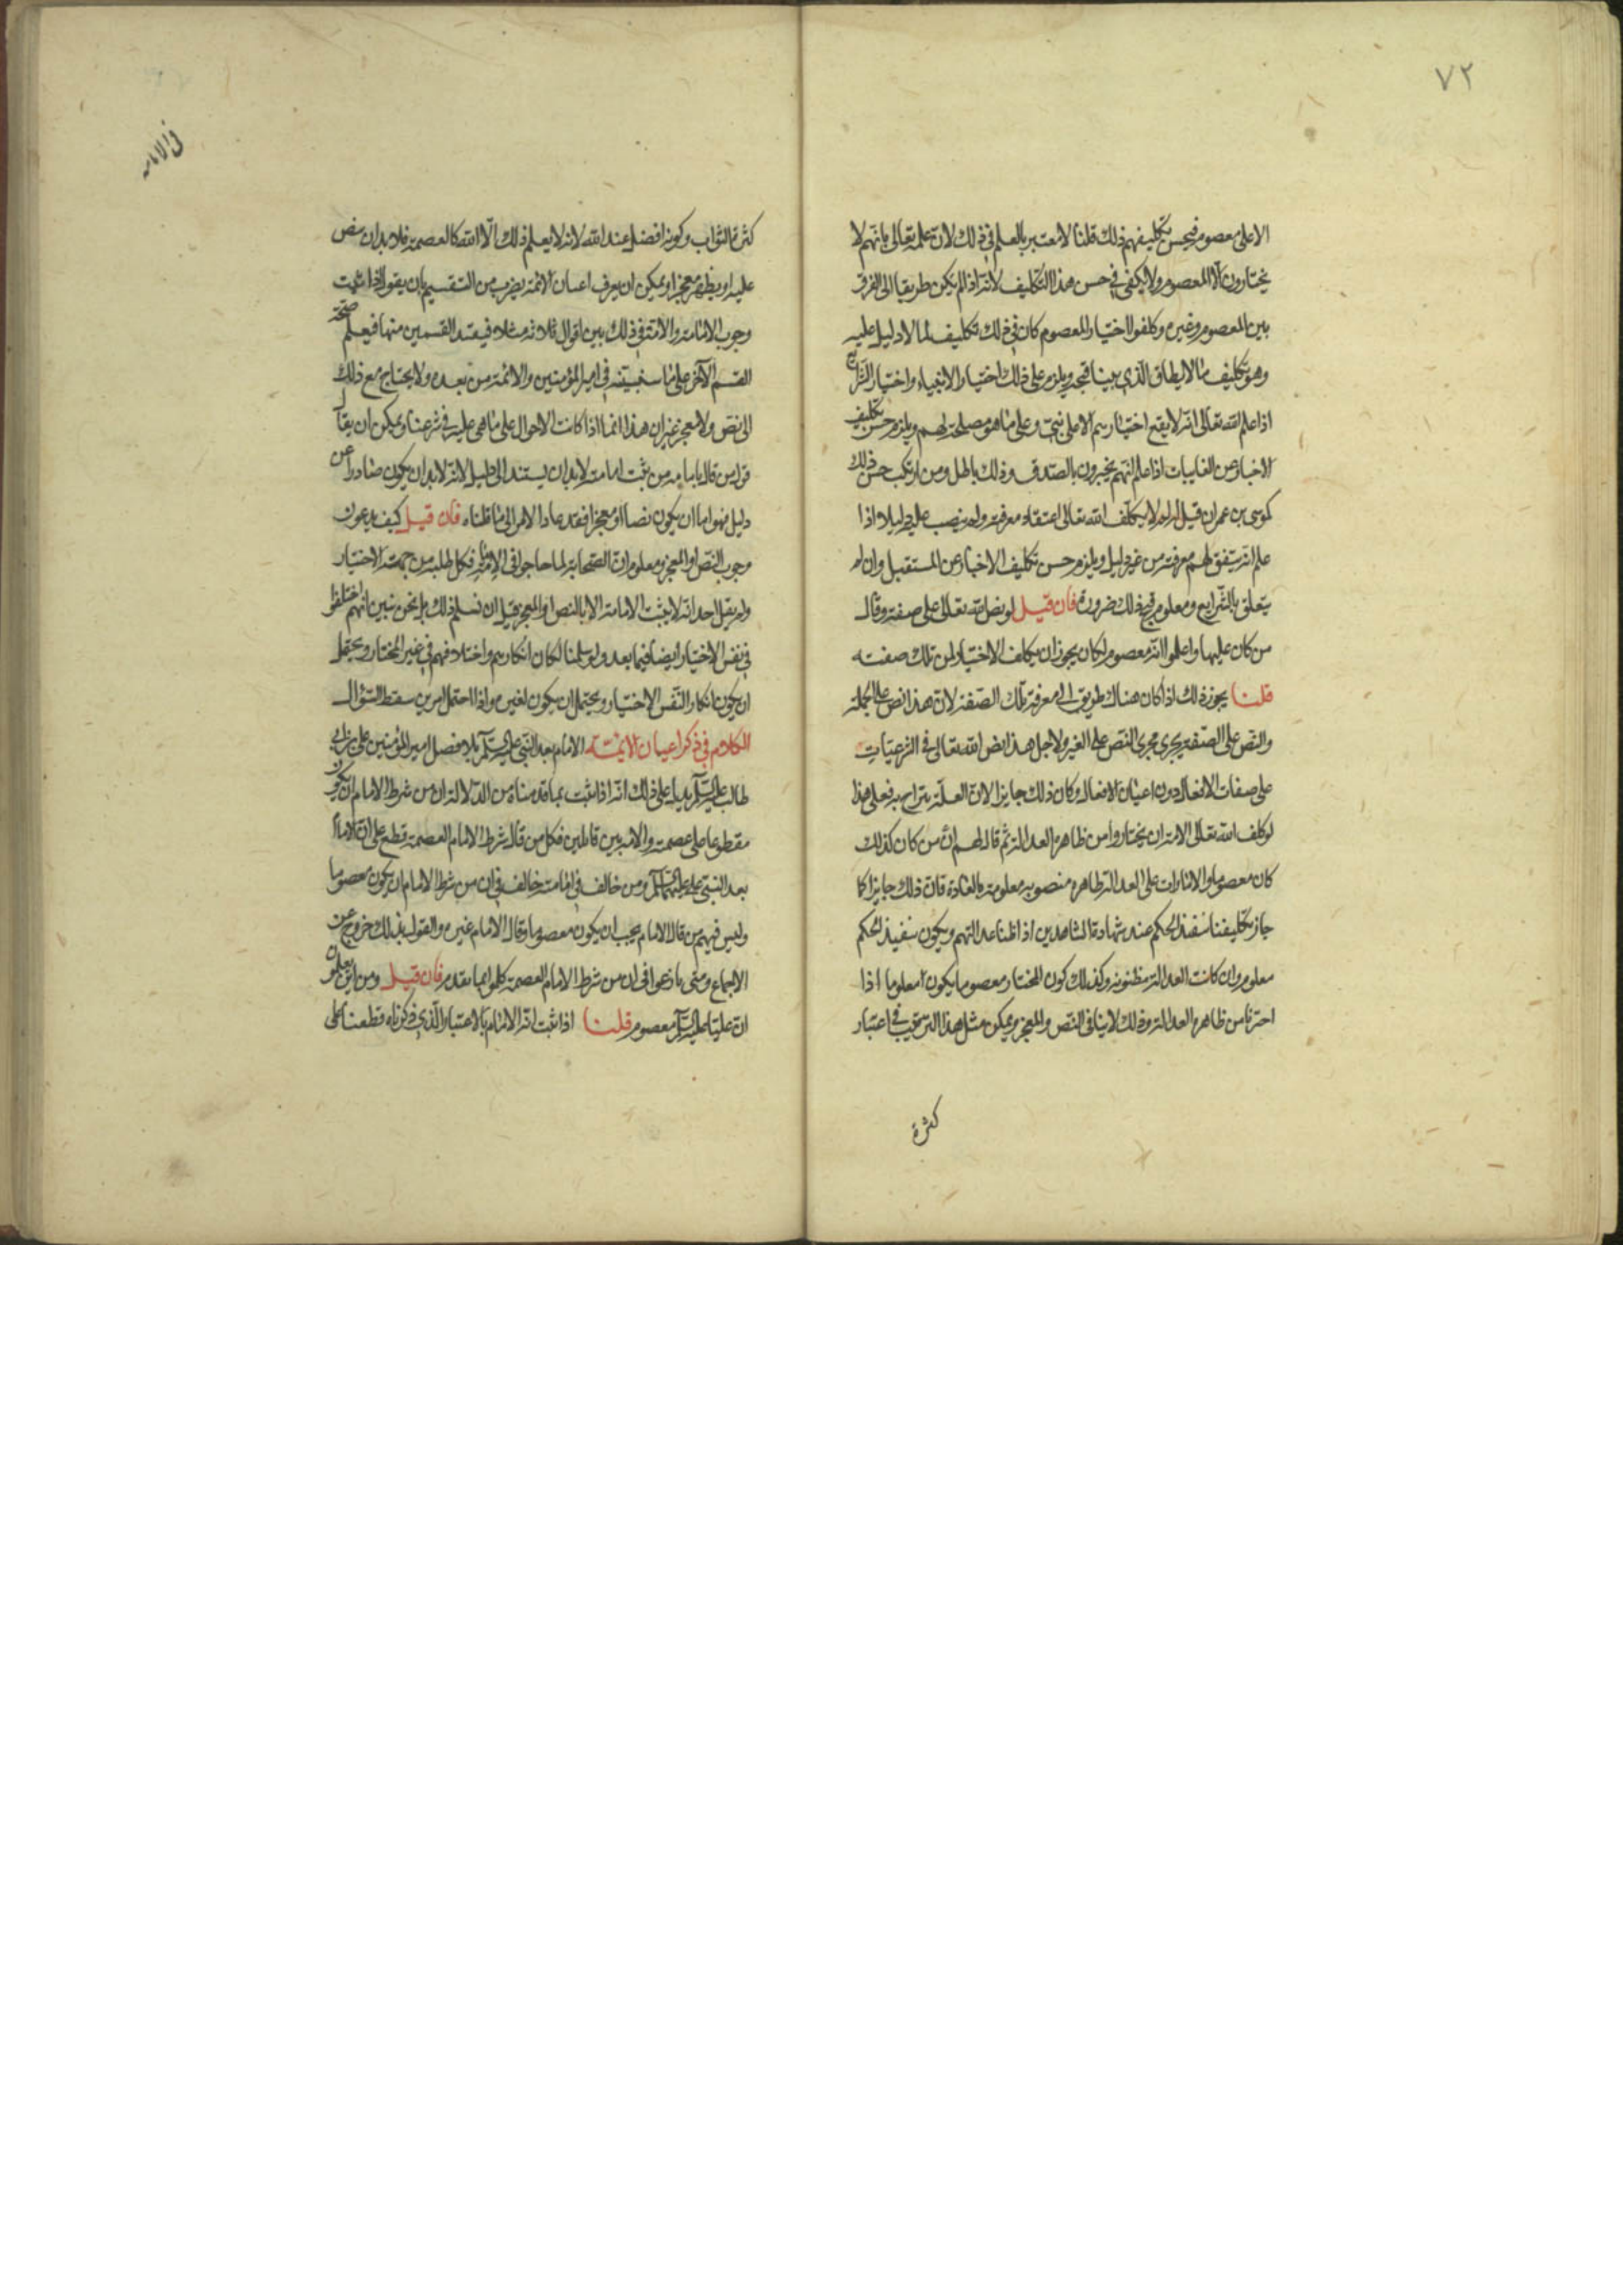 ٧٢
الا على معصوم فيحسن تكليفهم ذلك قلنا لا معتبر بالعلم في ذلك لان علمه تعالى بانهم لا
يختارون الا المعصوم ولا يكفي في حسن هذا التكليف لانه اذا لم يكن طريقا الى الفرق
بين المعصوم وغيره وكلفوا اختيار المعصوم كان في ذلك تكليف لما لا دليل عليه
وهو تكليف ما لا يطاق الذي بينا قبحه ويلزم على ذلك اختيار الانبياء واختيار الشرايع
اذا علم الله تعالى انه لا يقع اختيارهم الا على نبي وعلى ما هو مصلحة لهم ويلزم حسن تكليف
الاخبار عن الغايبات اذا علم انهم يخبرون بالصدق وذلك باطل ومن ارتكب حسن ذلك
كموسى بن عمران قيل له لا يكلف الله تعالى اعتقاد معرفته ولم ينصب عليه دليلا اذا
علم انه سيتفق لهم معرفته من غير دليل ويلزم حسن تكليف الاخبار عن المستقبل وان لم
يتعلق بالشرايع ومعلوم قبح ذلك ضرورة فان قيل لو نص الله تعالى على صفة وقال
من كان عليها واعلموا انه معصوم لكان يجوز ان يكلف الاختيار لمن تلك صفته
قلنا يجوز ذلك اذا كان هناك طريق الى معرفة تلك الصفة لان هذا نص على الجملة
والنص على الصفة يجري مجرى النص على الغير ولاجل هذا نص الله تعالى في الشرعيات
على صفات الافعال دون اعيان الافعال وكان ذلك جايزا لان العلة تتراح به فعلى هذا
لو كلف الله تعالى الامة ان يختاروا من ظاهره العدالة ثم قال لهم ان من كان كذلك
كان معصوما والامارات على العدالة ظاهره منصوبة معلومة بالعادة فان ذلك جايز كما
جاز تكليفنا تنفيذ الحكم عند شهادة الشاهدين اذا ظننا عدالتهم ويكون تنفيذ الحكم
معلوم وان كانت العدالة مظنونة وكذلك كون المختار معصوما يكون معلوما اذا
اخترنا من ظاهره العدالة وذلك لا ينافي النص والمعجز ويمكن مثل هذا الترتيب في اعتبار
كثرة
في الامامة
كثرة الثواب وكونه افضل عند الله لانه لا يعلم ذلك الا الله كالعصمة فلا بد ان ينص
عليه او يظهر معجزا ويمكن ان يعرف اعيان الائمة بضرب من التقسيم بان يقول اذا ثبت
وجوب الامامة والامة في ذلك بين اقوال ثلاثة مثلا فيفسد القسمين منها فيعلم صحة
القسم الآخر على ما سنبينه في امير المؤمنين والائمة من بعده ولا يحتاج مع ذلك
الى نص ولا معجز غير ان هذا انما اذا كانت الاحوال على ما هي عليه في شرعنا ويمكن ان يقال
قول من قال بامامة من يثبت امامته لا بد ان يستند الى دليل لانه لا بد ان يكون صادرا عن
دليل فهو اما ان يكون نصا او معجزا فقد عاد الامر الى ما قلناه فان قيل كيف يدعون
وجوب النص او المعجز ومعلوم ان الصحابة لما حاجوا في الامامة فكل طلبه من جهة الاختيار
ولم يقل احد انه لا يثبت الامامة الا بالنص او المعجز قيل لن نسلم ذلك بل نحن نبين انهم اختلفوا
في نفس الاختيار ايضا فيما بعد ولو سلمنا لكان انكارهم واختلافهم في غير المختار ويحتمل
ان يكون انكار النفس الاختيار ويحتمل ان يكون لغيره واذا احتمل امرين سقط السؤال
الكلام في ذكر اعيان الائمة الامام بعد النبي عليه السلام بلا فصل امير المؤمنين علي بن ابي
طالب عليه السلم يدل على ذلك انه اذا ثبت بما قدمناه من الدلالة ان من شرط الامام ان يكون
مقطوعا على عصمته والامة بين قايلين فكل من قال شرط الامام العصمة قطع على ان الامام
بعد النبي علي عليهما السلم ومن خالف في امامته خالف في ان من شرط الامام ان يكون معصوما
وليس فيهم من قال الامام يجب ان يكون معصوما وقال الامام غيره والقول بذلك خروج عن
الاجماع ومتى نازعوا في ان من شرط الامام العصمة كلموا بما تقدم فان قيل ومن اين تعلمون
ان عليا عليه السلم معصوم قلنا اذا ثبت انه الامام بالاعتبار الذي ذكرناه قطعنا على